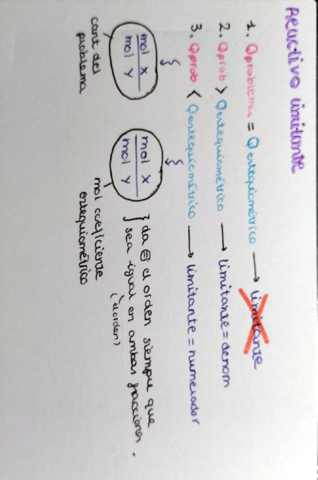 Reactivo limitante
1. Qproblema = Qestequiométrico → limitante
2. Qprob > Qestequiométrico → limitante = denom
3. Qprob < Qestequiométrico → limitante = numerador
mol X
mol Y
cant del
problema
mol X
mol Y
mol coeficiente
estequiométrico
da = el orden siempre que
sea igual en ambas fracciones.
(el orden)